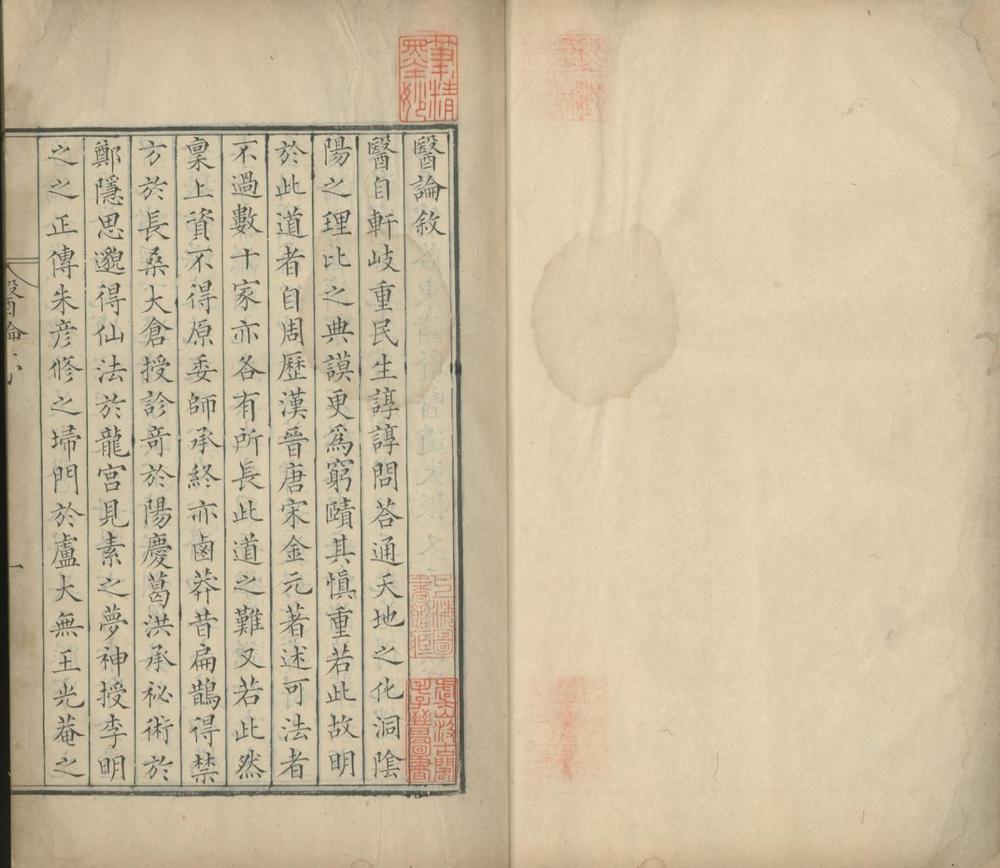 醫論敘
醫自軒岐重民生諄諄問荅通天地之化洞陰
陽之理比之典謨更爲窮賾其愼重若此故明
於此道者自周歷漢晉唐宋金元著述可法者
不過數十家亦各有所長此道之難又若此然
稟上資不得原委師承終亦鹵莽昔扁鵲得禁
方於長桑大倉授診竒於陽慶葛洪承祕術於
鄭隱思邈得仙法於龍宮見素之夢神授李明
之之正傳朱彦修之埽門於盧大無王光菴之
醫論
一
筆精墨妙
虞山汲古閣
字子晉圖書